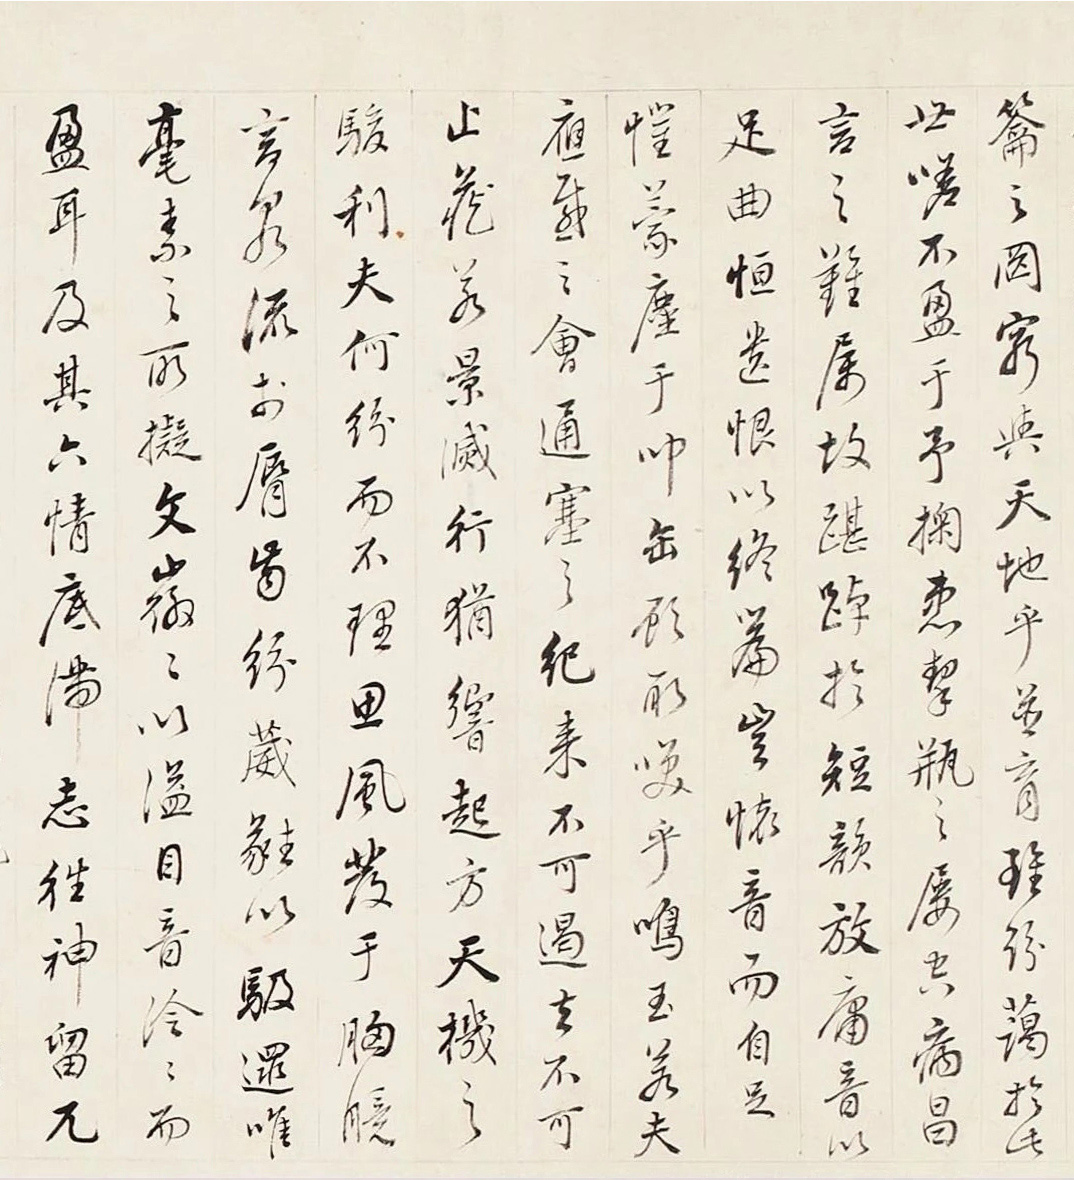 籥之罔窮與天地乎並育雖紛藹於此
世嗟不盈于予掬患挈瓶之屢空病昌
言之難属故踸踔於短韻放庸音以
足曲恒遺恨以終篇豈懷音而自足
懼蒙塵于叩缶顧取笑乎鳴玉若夫
應感之會通塞之紀来不可遏去不可
止藏若景滅行猶響起方天機之
駿利夫何紛而不理思風發于胸臆
言泉流於脣齒紛葳蕤以馺遝唯
毫素之所擬文徽々以溢目音泠々而
盈耳及其六情底滯志徃神留兀